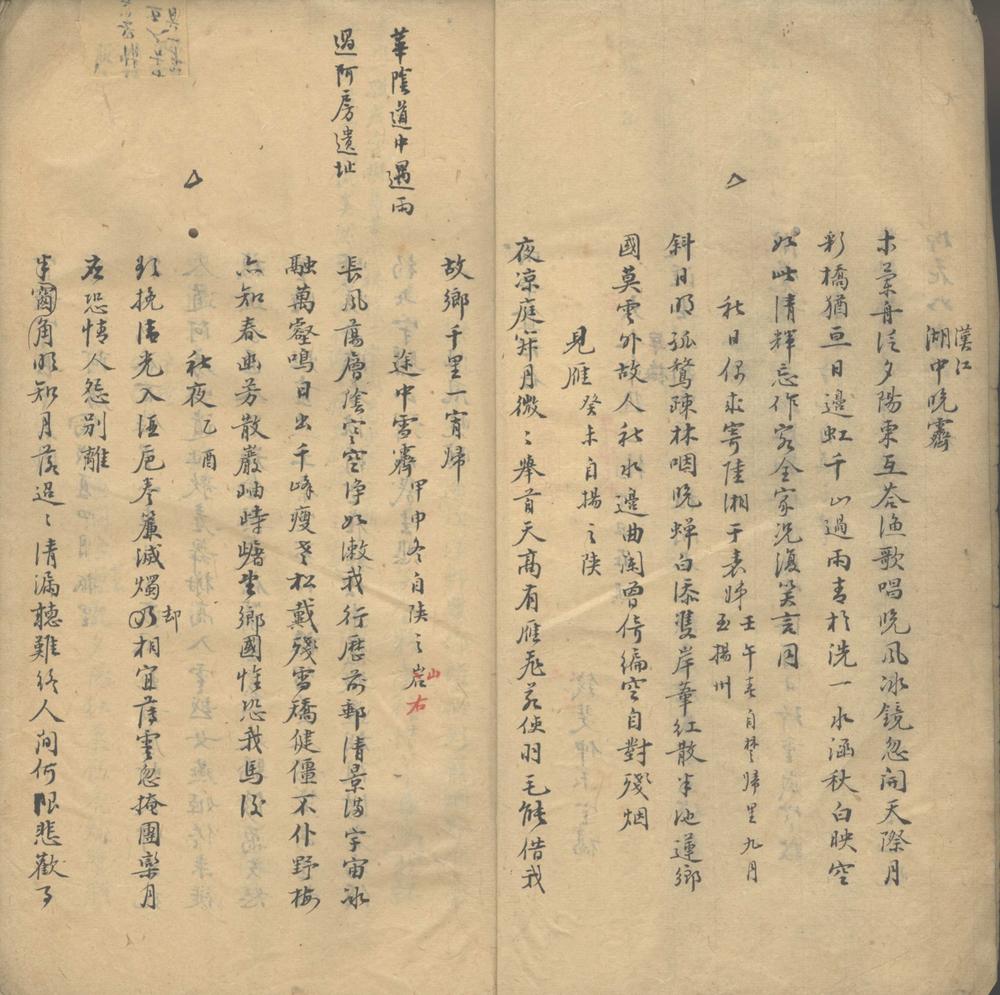 漢江
湖中晚霽
木蘭舟泛夕陽東互荅漁歌唱晚風冰鏡忽開天際月
彩橋猶亘日邊虹千山過雨青於洗一水涵秋白映空
如此清輝忘作客全家況復笑言同
秋日偶成寄陸湘于表姊壬午春自楚歸里九月
至揚州
斜日明孤鶩疎林咽晚蟬白添雙岸葦紅散半池蓮鄉
國莫雲外故人秋水邊曲闌曾倚徧空自對殘烟
見雁癸未自揚之陝
夜凉庭𡨴月微〻舉首天高有雁飛若使羽毛能借我
故鄉千里一宵歸
華陰道中遇雨
過阿房遺址
途中雪霽甲申冬自陝之岩山
右
長風蕩層陰寥空淨如漱我行歷前郵清景滿宇宙冰
融萬壑鳴日出千峰瘦老松戴殘雪矯健僵不仆野梅
亦知春幽芳散巖岫峙嶱坐鄉國惟恐我馬後
秋夜乙酉
預挽清光入酒巵捲簾滅燭乃却相宜薄雲忽掩團欒月
應恐情人怨別離
半窗角明知月落迢〻清漏聽難終人间何限悲歡事